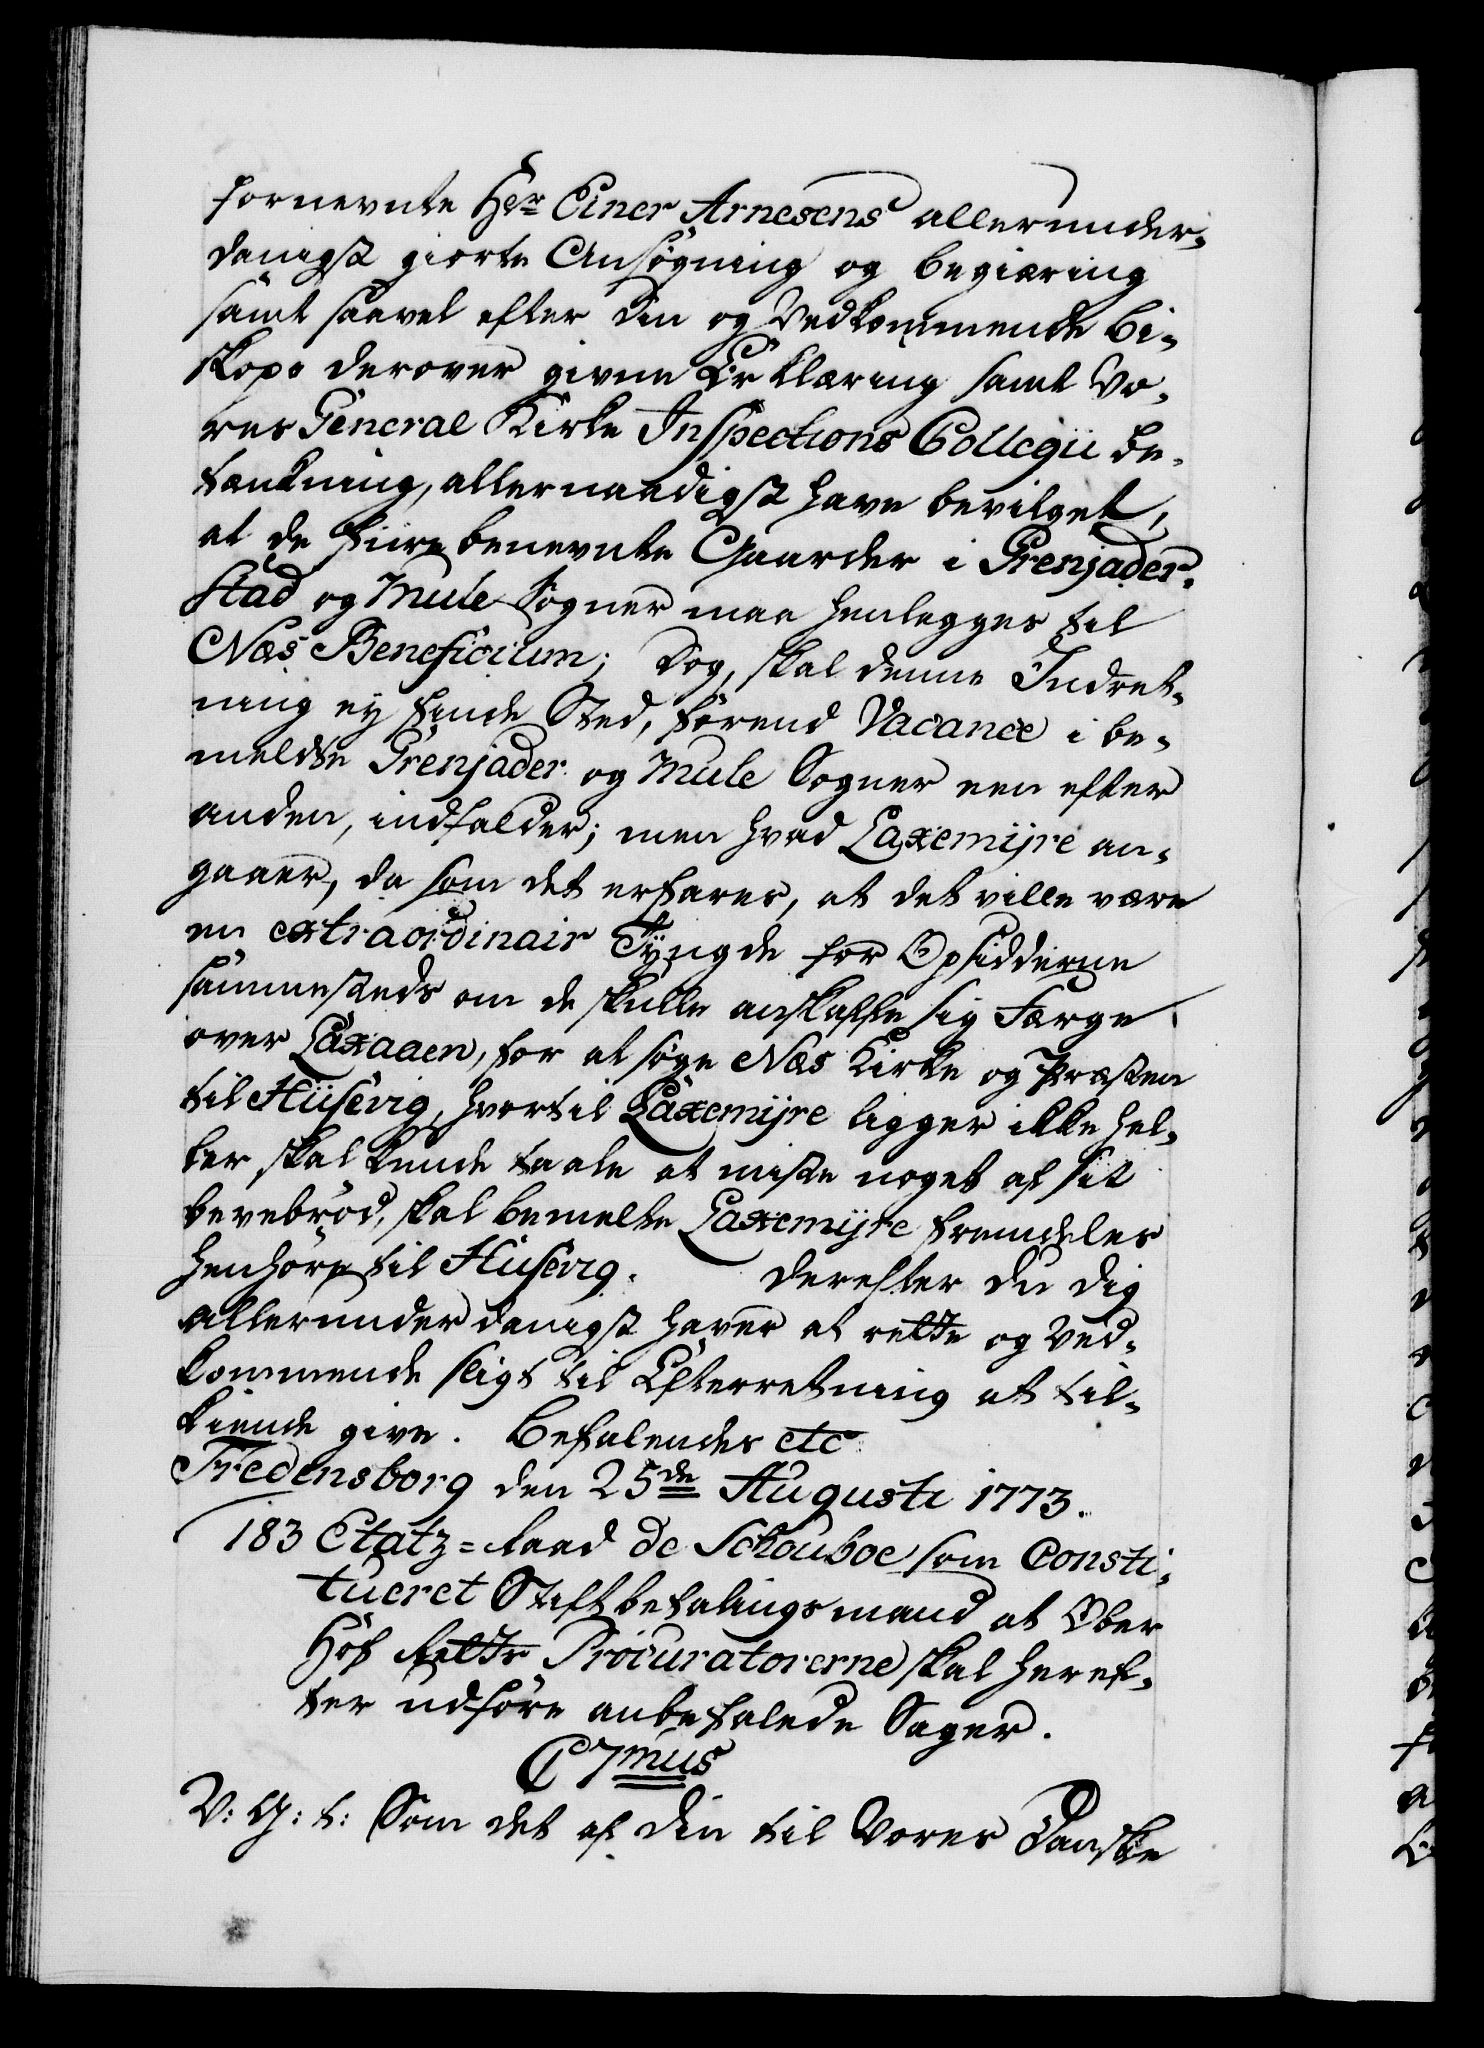 fornevnte Hr Einer Arnesens allerunder-
danigst giorte Ansøgning og begiæring
samt saavel efter din og Vedkommende Bi-
skops derover givne Erklæring samt Vo-
res General Kirke Inspections Collegii be-
tænkning, allernaadigst have bevilget,
at de fiire benevnte Gaarder i Grenjader-
stad og Mule Sogner maa henlegges til
Næs Beneficium; dog, skal denne Indret-
ning ey finde Sted, førend Vacance i be-
meldte Grenjader og Mule Sogner een efter
anden, indfalder; men hvad Laxemyre an-
gaaer, da som det erfares, at det ville være
en extraordinair Tyngde for Opsidderne
sammesteds om de skulle anskaffe sig Færge
over Laxaaen, for at søge Næs Kirke og Præsten
til Husevig, hvortil Laxemyre ligger ikke hel-
ler skal kunde taale at miste noget af sit
levebrød, skal bemelte Laxemyre fremdeles
henhøre til Husevig. Derefter du dig
allerunderdanigst haver at rette og Ved-
kommende sligt til Efterretning at til-
kiende give. Befalendes etc
Fredensborg den 25de Augusti 1773.
183 Etatz=Raad de Schouboe som Consti-
tueret Stiftbefalingsmand at Ober
Hof Retts Procuratorerne skal heref-
ter udføre anbefalede Sager.
C 7mus
V: G: t: Som det af din til Vores Danske